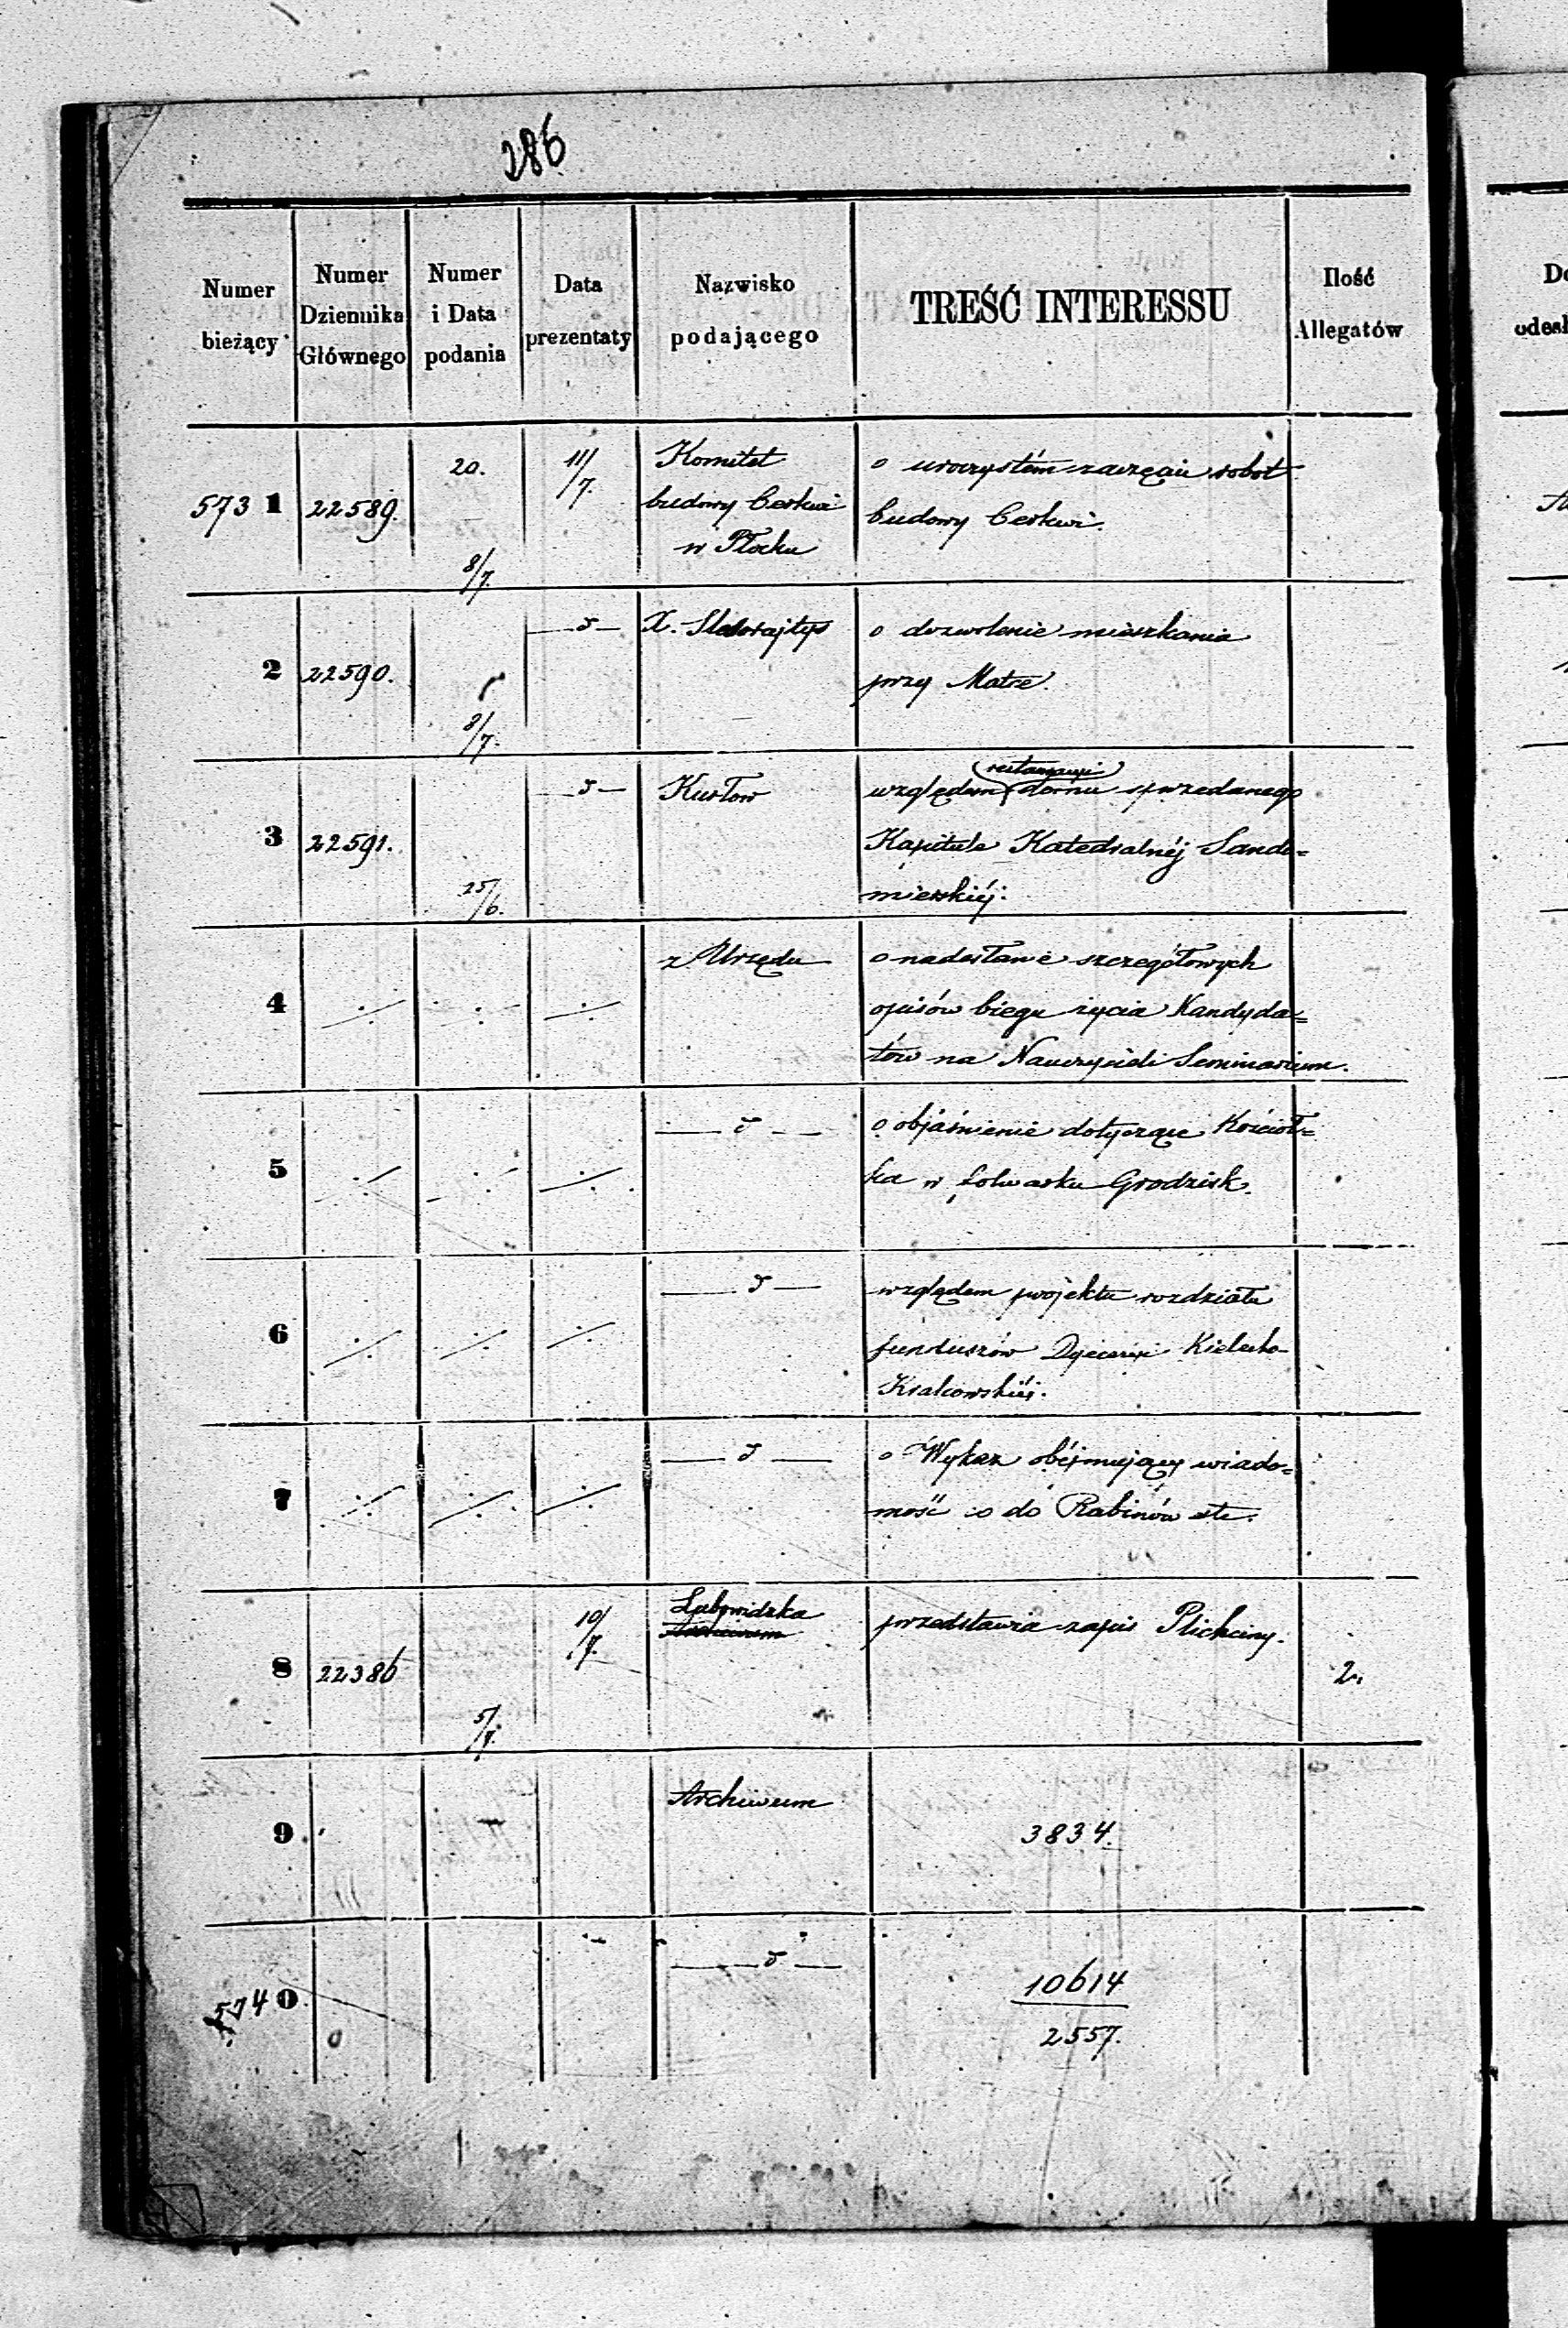 286
Numer bieżący
Numer Dziennika Głównego
Numer i Data podania
Data prezentaty
Nazwisko podającego
TREŚĆ INTERESSU
Ilość Allegatów
573 1 22589. 20. 8/7. 11/7. Komitet
budowy Cerkwi
w Płocku
o uroczystém zaczęciu robot
budowy Cerkwi.
2 22590. 8/7. — d — X.
o dozwolenie mieszkania
przy Matce.
3 22591. 25/6. — d — Kurłow
restauracyi
względem domu sprzedanego
Kapitule Katedralnéj Sando=
mierskiéj.
4 ·/· ·/· ·/· z Urzędu
o nadesłanie szczegółowych
opisów biegu życia Kandyda=
tów na Nauczycieli Seminarium.
5 ·/· ·/· ·/· — d —
o objaśnienie dotyczące Kościoł=
ka w folwarku Grodzisk.
6 ·/· ·/· ·/· — d —
względem projektu rozdziału
funduszów Dyecezyi Kielecko-
Krakowskiéj.
7 ·/· ·/· ·/· — d —
o Wykaz obéjmujący wiado=
mość co do Rabinów etc.
8 22386 5/7. 10/7. Lubowidzka
przedstawia zapis Plichciny.
2.
9 Archiwum
3834.
574 0 — d —
10614
2557.